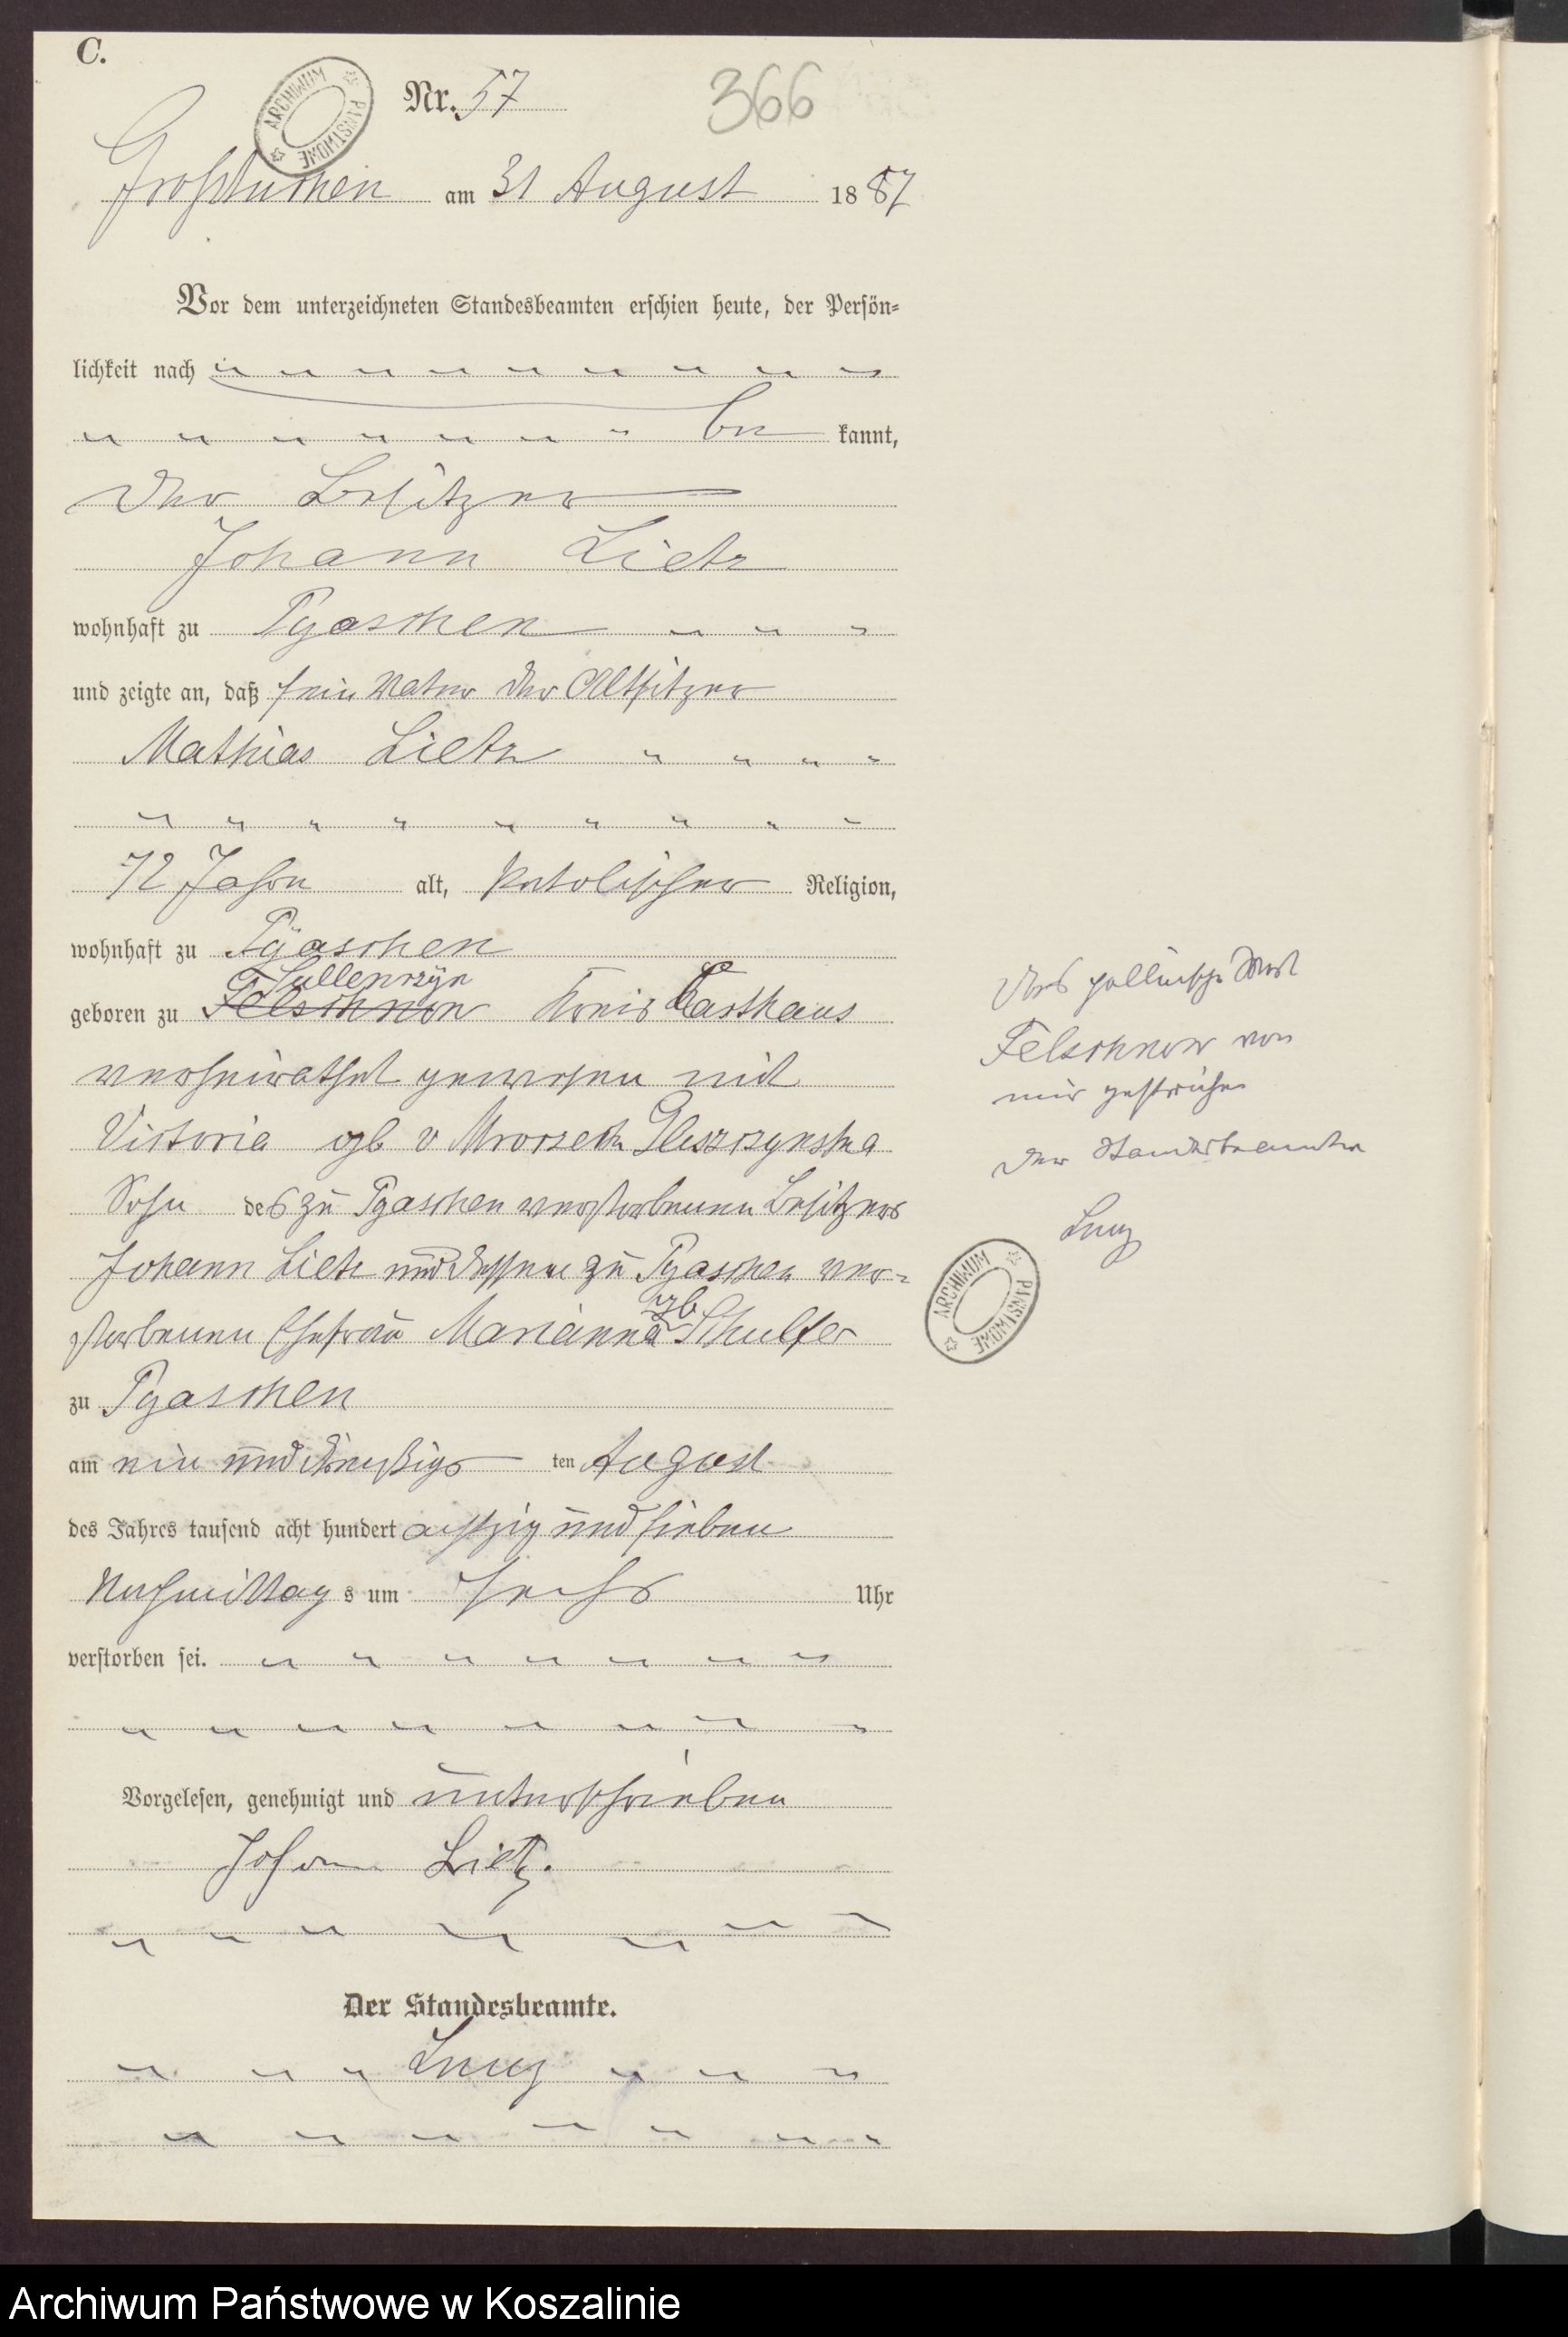 C.
ARCHIWUM PAŃSTWOWE
Nr. 57
366
Großtuchen am 31 August 1887
Vor dem unterzeichneten Standesbeamten erschien heute, der Persön=
lichkeit nach
be kannt,
der Besitzer
Johann Lietz
wohnhaft zu Pyaschen
und zeigte an, daß sein Vater der Altsitzer
Mathias Lietz
72 Jahre alt, katolischer Religion,
wohnhaft zu Pyaschen
Sullenczyn
geboren zu Felschnow Kreis Carthaus
verheirathet gewesen mit
Victoria geb v Mroczek
Sohn des zu Pyaschen verstorbenen Besitzers
Johann Lietz und dessen zu Pyaschen ver=
geb
storbenen Ehefrau Marianna
zu Pyaschen
am ein und dreißigs ten August
des Jahres tausend acht hundert achtzig und sieben
Nachmittag s um sechs Uhr
verstorben sei.
Vorgelesen, genehmigt und unterschrieben
Johann Lietz.
Der Standesbeamte.
Das Wort
Felschnow von
mir gestrichen
Der Standesbeamte
ARCHIWUM PAŃSTWOWE
Archiwum Państwowe w Koszalinie